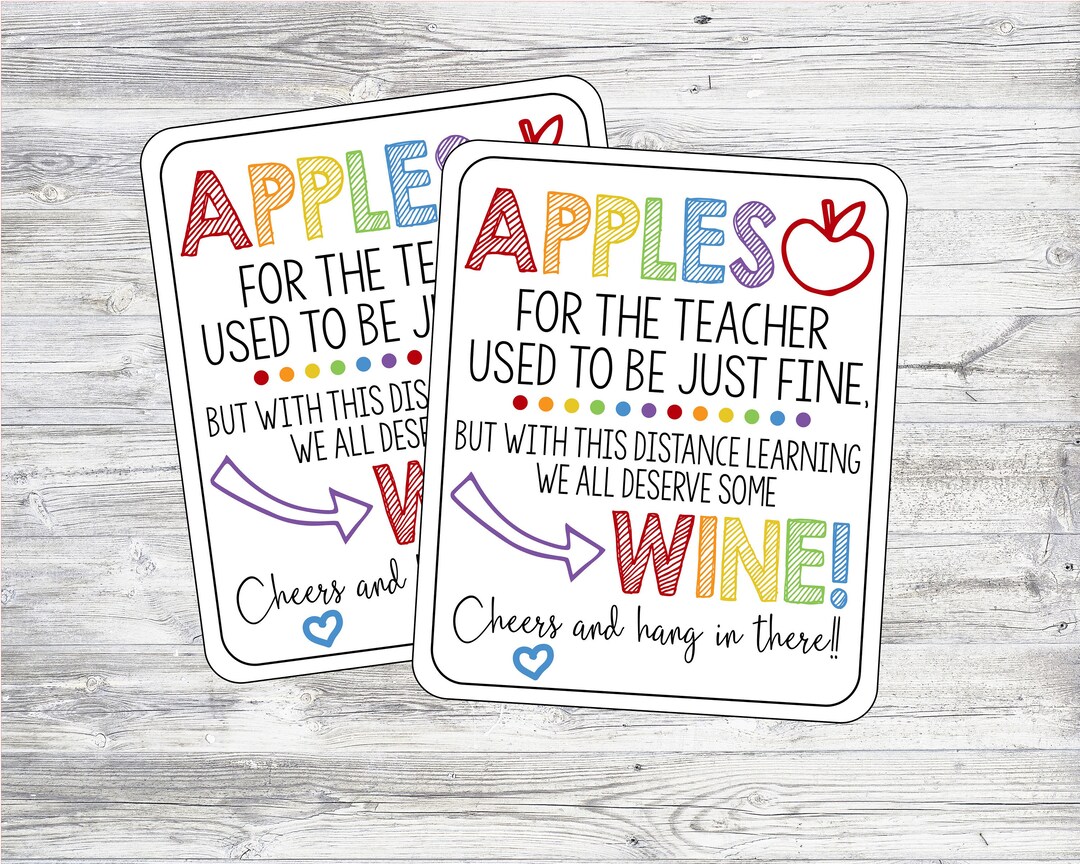 APPLES
FOR THE TE
USED TO BE J
BUT WITH THIS DIS
WE ALL DESE
W
Cheers and
APPLES
FOR THE TEACHER
USED TO BE JUST FINE,
BUT WITH THIS DISTANCE LEARNING
WE ALL DESERVE SOME
WINE!
Cheers and hang in there!!